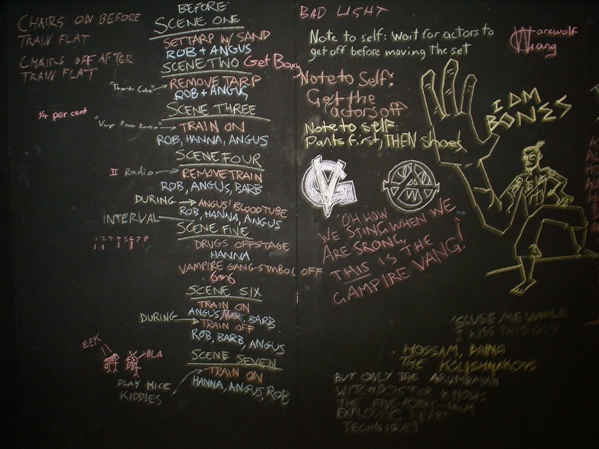 CHAIRS ON BEFORE
TRAIN FLAT
CHAIRS OFF AFTER
TRAIN FLAT
1/4 per cent
BEFORE
SCENE ONE
SET TARP W/ SAND
ROB + ANGUS
SCENE TWO Get Box
REMOVE TARP
ROB + ANGUS
SCENE THREE
TRAIN ON
ROB, HANNA, ANGUS
SCENE FOUR
II Radio → REMOVE TRAIN
ROB, ANGUS, BARB
DURING → ANGUS! BLOOD TUBE
ROB, HANNA, ANGUS
INTERVAL
SCENE FIVE
DRUGS OFFSTAGE
HANNA
VAMPIRE GANG SYMBOL OFF
SCENE SIX
TRAIN ON
ANGUS, BARB
DURING → TRAIN OFF
ROB, BARB, ANGUS
SCENE SEVEN
TRAIN ON
HANNA, ANGUS, ROB
EEK
BLA
PLAY NICE
KIDDIES
BAD LIGHT
Note to self: Wait for actors to
get off before moving the set
Note to Self:
Get the
actors off
Note to self:
Pants first, THEN shoes
VG
"OH HOW
WE STING WHEN WE
ARE STRONG,
THIS IS THE
GAMPIRE VANG!
Warewolf
Gang
I AM
BONES
'SCUSE ME WHILE
I KISS THIS GUY
HOSSAM, BRING
THE
BUT ONLY THE
WITCHDOCTOR KNOWS
THE FIVE-POINT PALM
EXPLODING
TECHNIQUE!